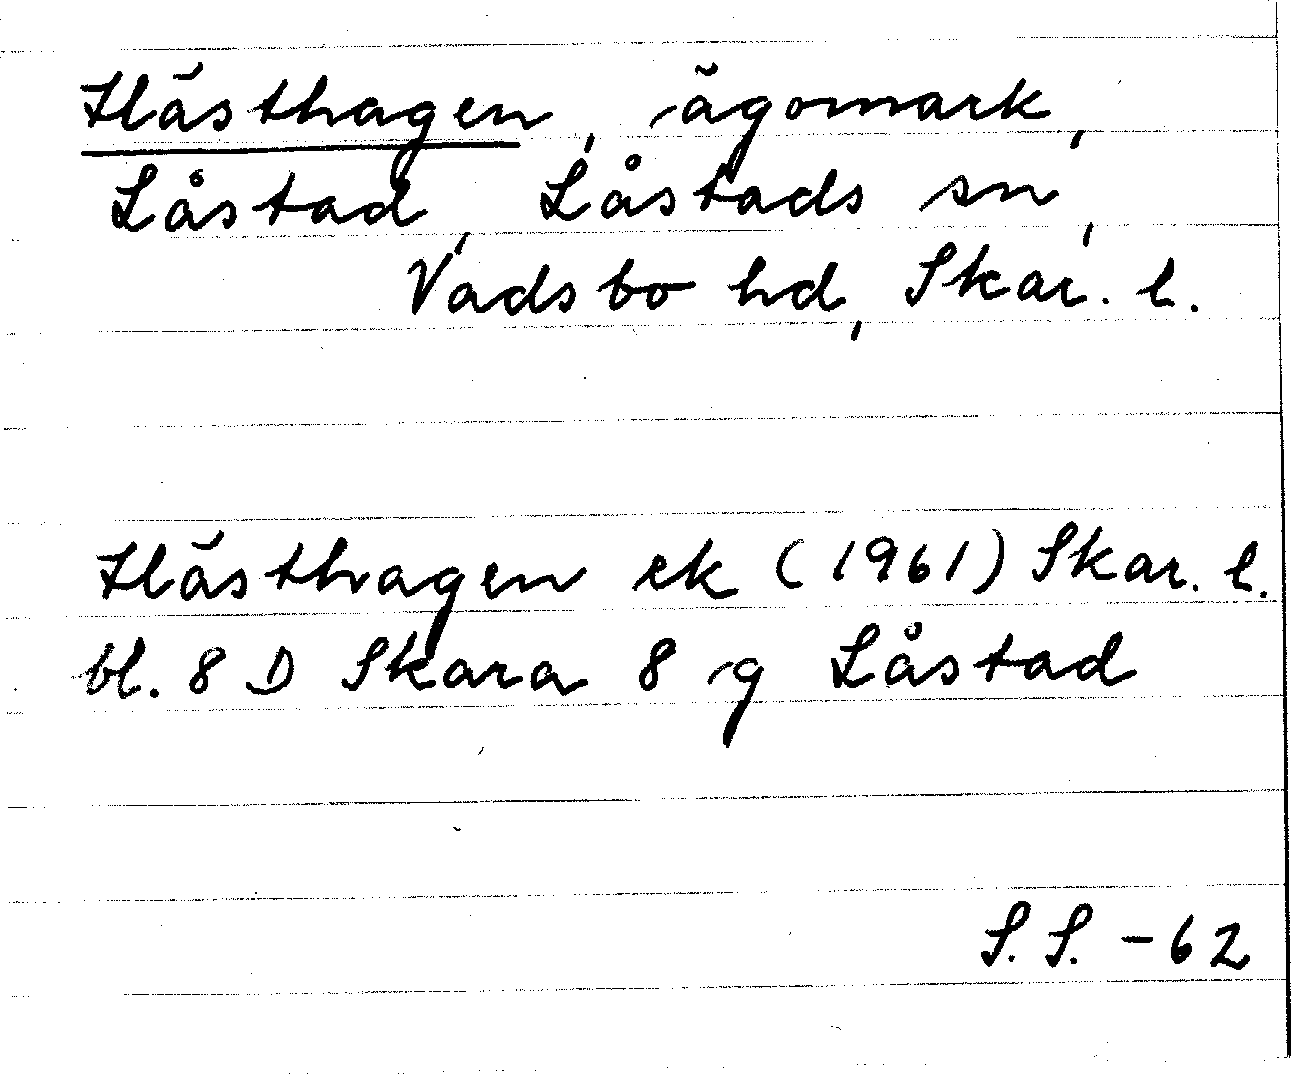 Hästhagen, ägomark,
Låstad, Låstads sn,
Vadsbo hd, Skar. l.
Hästhagen ek (1961) Skar. l.
bl. 8 D Skara 8 g Låstad
S. S. -62